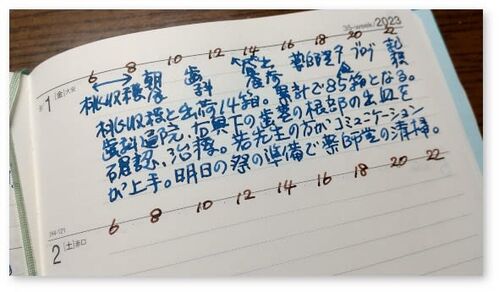 35-week/2023
6 8 10 12 14 16 18 20 22
1 [金]大安
桃収穫 朝食 歯科 薬師堂 ブログ 記録
桃収穫と出荷14箱。累計で85箱となる。
歯科通院、右奥下の歯茎の根部の出血を
確認、治療。若先生の方がコミュニケーション
が上手。明日の祭の準備で薬師堂の清掃。
6 8 10 12 14 16 18 20 22
2 [土]赤口